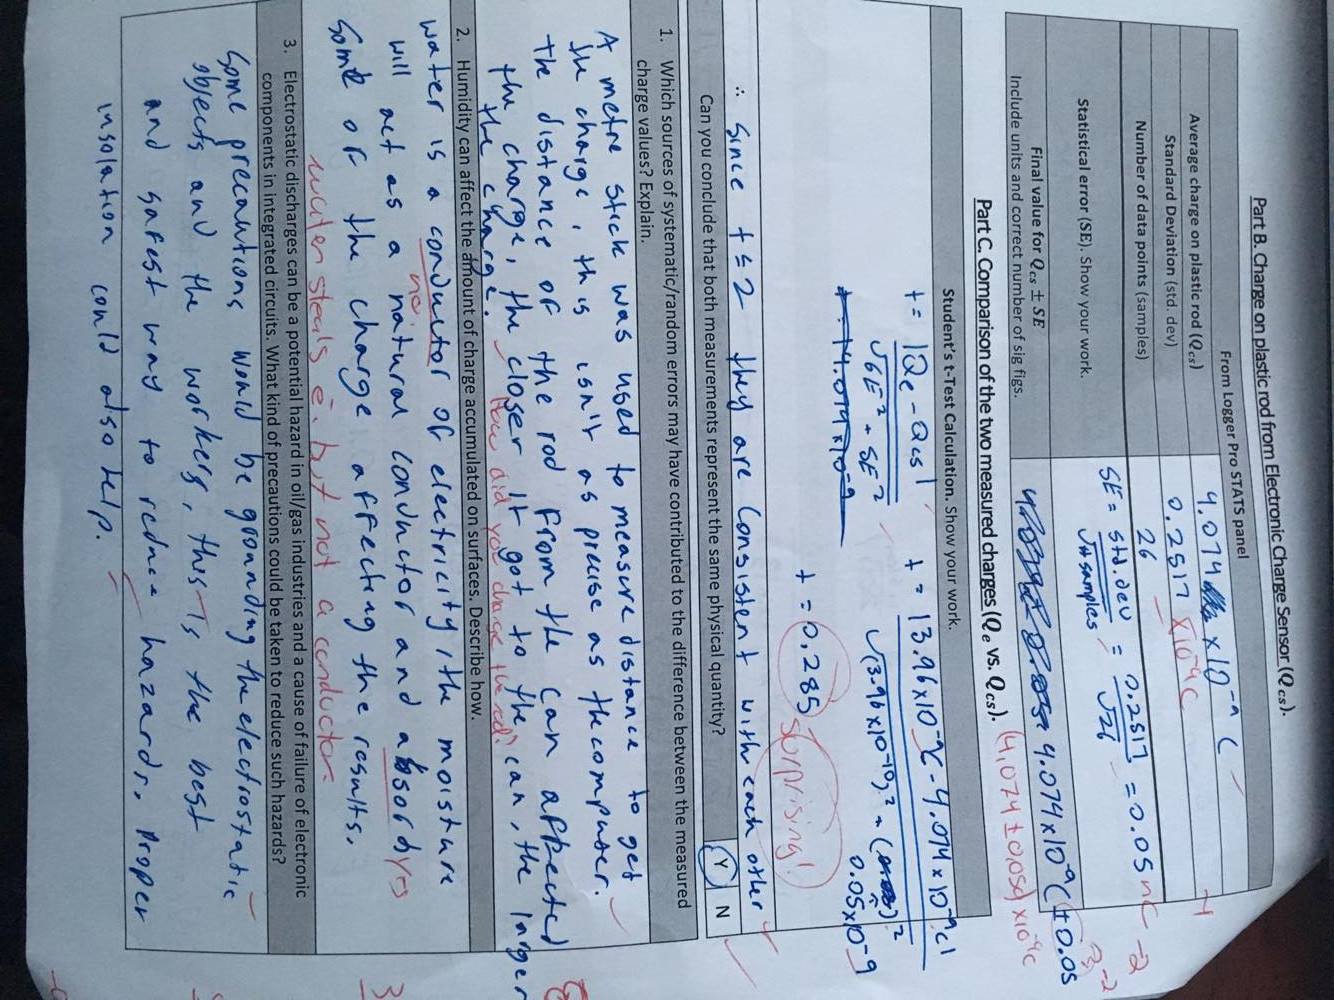 Part B. Charge on plastic rod from Electronic Charge Sensor (Qcs).
From Logger Pro STATS panel
Average charge on plastic rod (Qcs) 4.074 x10⁻⁹ C
Standard Deviation (std. dev) 0.2517 x10⁻⁹C
-1
Number of data points (samples) 26
Statistical error (SE). Show your work. SE = std.dev / √#samples = 0.2517 / √26 = 0.05 nC -2
Final value for Qcs ± SE
Include units and correct number of sig figs. 4.074x10⁻⁹C ±0.05
-2
(4.074 ± 0.05) x10⁻⁹C
Part C. Comparison of the two measured charges (Qe vs. Qcs).
Student's t-Test Calculation. Show your work.
t = |Qe - Qcs| / √SE² + SE² t = |3.96x10⁻⁹C - 4.074x10⁻⁹C| / √(3.96x10⁻¹⁰)² + ( )²
0.05x10⁻⁹
t = 0.285 surprising!
∴ Since t ≤ 2 they are consistent with each other
Can you conclude that both measurements represent the same physical quantity? Y N
1. Which sources of systematic/random errors may have contributed to the difference between the measured
charge values? Explain.
A metre stick was used to measure distance to get
the charge, this isn't as precise as the computer.
The distance of the rod from the can affected
the charge, the closer it got to the can, the larger
the charge. How did you charge the rod?
2. Humidity can affect the amount of charge accumulated on surfaces. Describe how.
water is a conductor of electricity, the moisture
no
will act as a natural conductor and absorb yes
some of the charge affecting the results.
water steals e⁻. but not a conductor
3
3. Electrostatic discharges can be a potential hazard in oil/gas industries and a cause of failure of electronic
components in integrated circuits. What kind of precautions could be taken to reduce such hazards?
Some precautions would be grounding the electrostatic
objects and the workers, this is the best
and safest way to reduce hazards. Proper
insolation could also help.